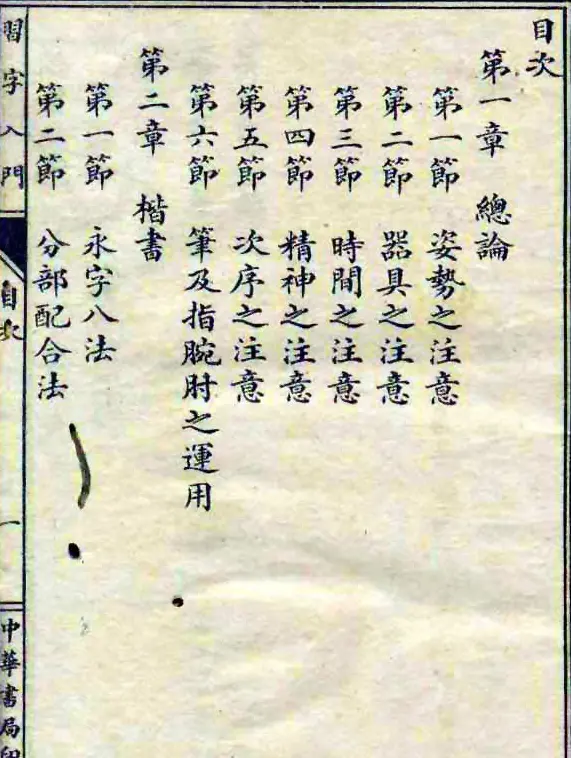 目次
第一章　總論
第一節　姿勢之注意
第二節　器具之注意
第三節　時間之注意
第四節　精神之注意
第五節　次序之注意
第六節　筆及指腕肘之運用
第二章　楷書
第一節　永字八法
第二節　分部配合法
習字入門
目次
一
中華書局印